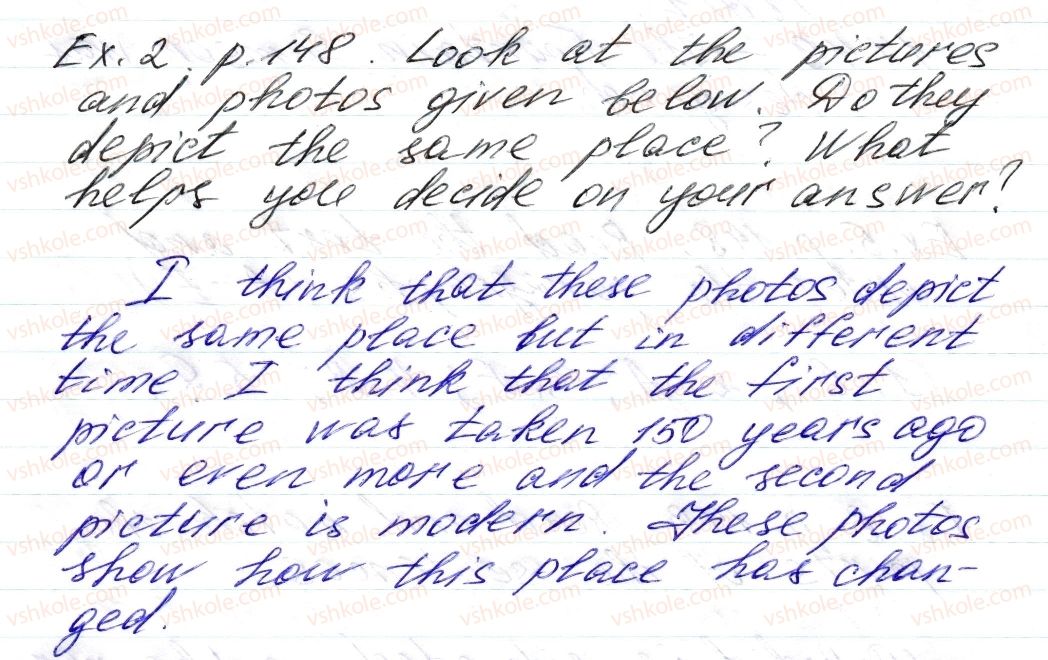 Ex. 2. p. 148. Look at the pictures
and photos given below. Do they
depict the same place? What
helps you decide on your answer?
I think that these photos depict
the same place but in different
time. I think that the first
picture was taken 150 years ago
or even more and the second
picture is modern. These photos
show how this place has chan-
ged.